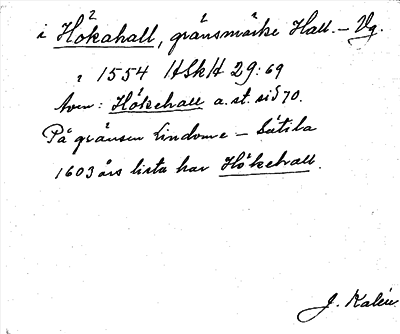 i Hökahall, gränsmärke Hall. – Vg.
2
" 1554 HSkH 29:69
även: Hökehall a. st. sid 70.
På gränsen Lindome – Sätila
1603 års lista har Hökehall.
J. Kalén